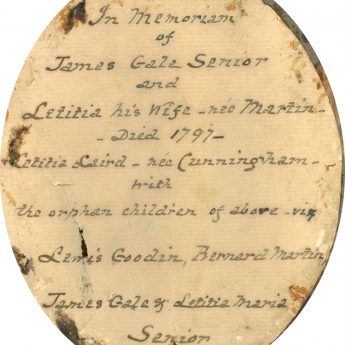 In Memoriam
of
James Gale Senior
and
Letitia his Wife - neé Martin -
- Died 1797 -
Letitia Laird - neé Cunningham -
with
the orphan children of above - viz
Lewis Goodin, Bernard Martin
James Gale & Letitia Maria
Senior